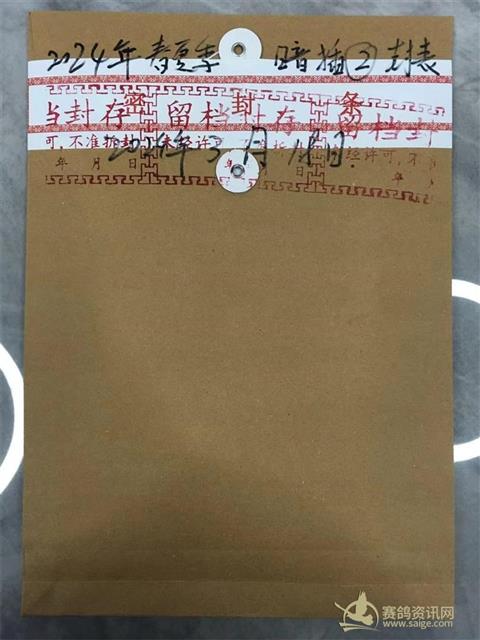 2024年春夏季 暗插②封表
密 封 条
当封存 留档 存 留档封
可,不准拆封 未经许 经许可,不
年 月 日 年 月 日
2024年3月 日.
赛鸽资讯网
www.saige.com